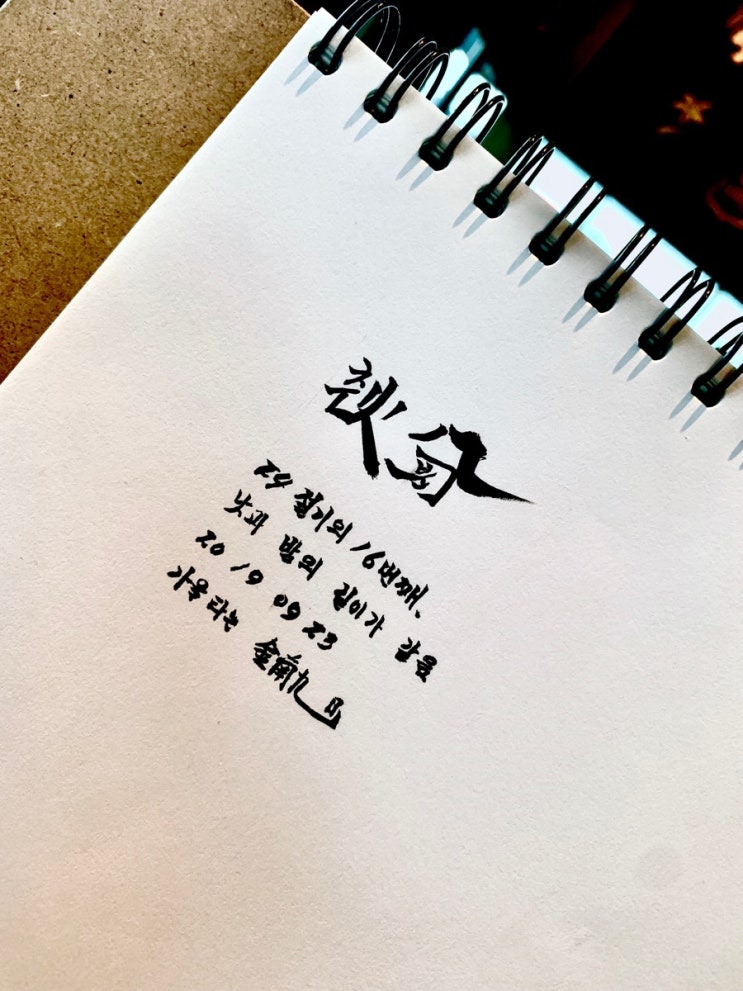 秋分
24 절기의 16번째,
낮과 밤의 길이가 같음
2019 09 23
가을타는 金南九